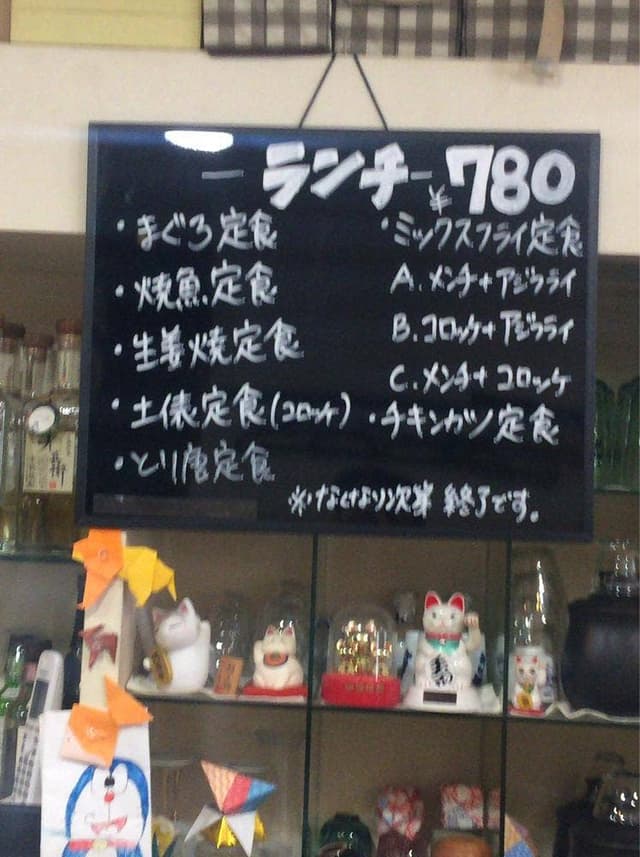 ランチ ¥780
・まぐろ定食
・焼魚定食
・生姜焼定食
・土俵定食(コロッケ)
・とり唐定食
・ミックスフライ定食
A. メンチ+アジフライ
B. コロッケ+アジフライ
C. メンチ+コロッケ
・チキンカツ定食
※なくなり次第 終了です。